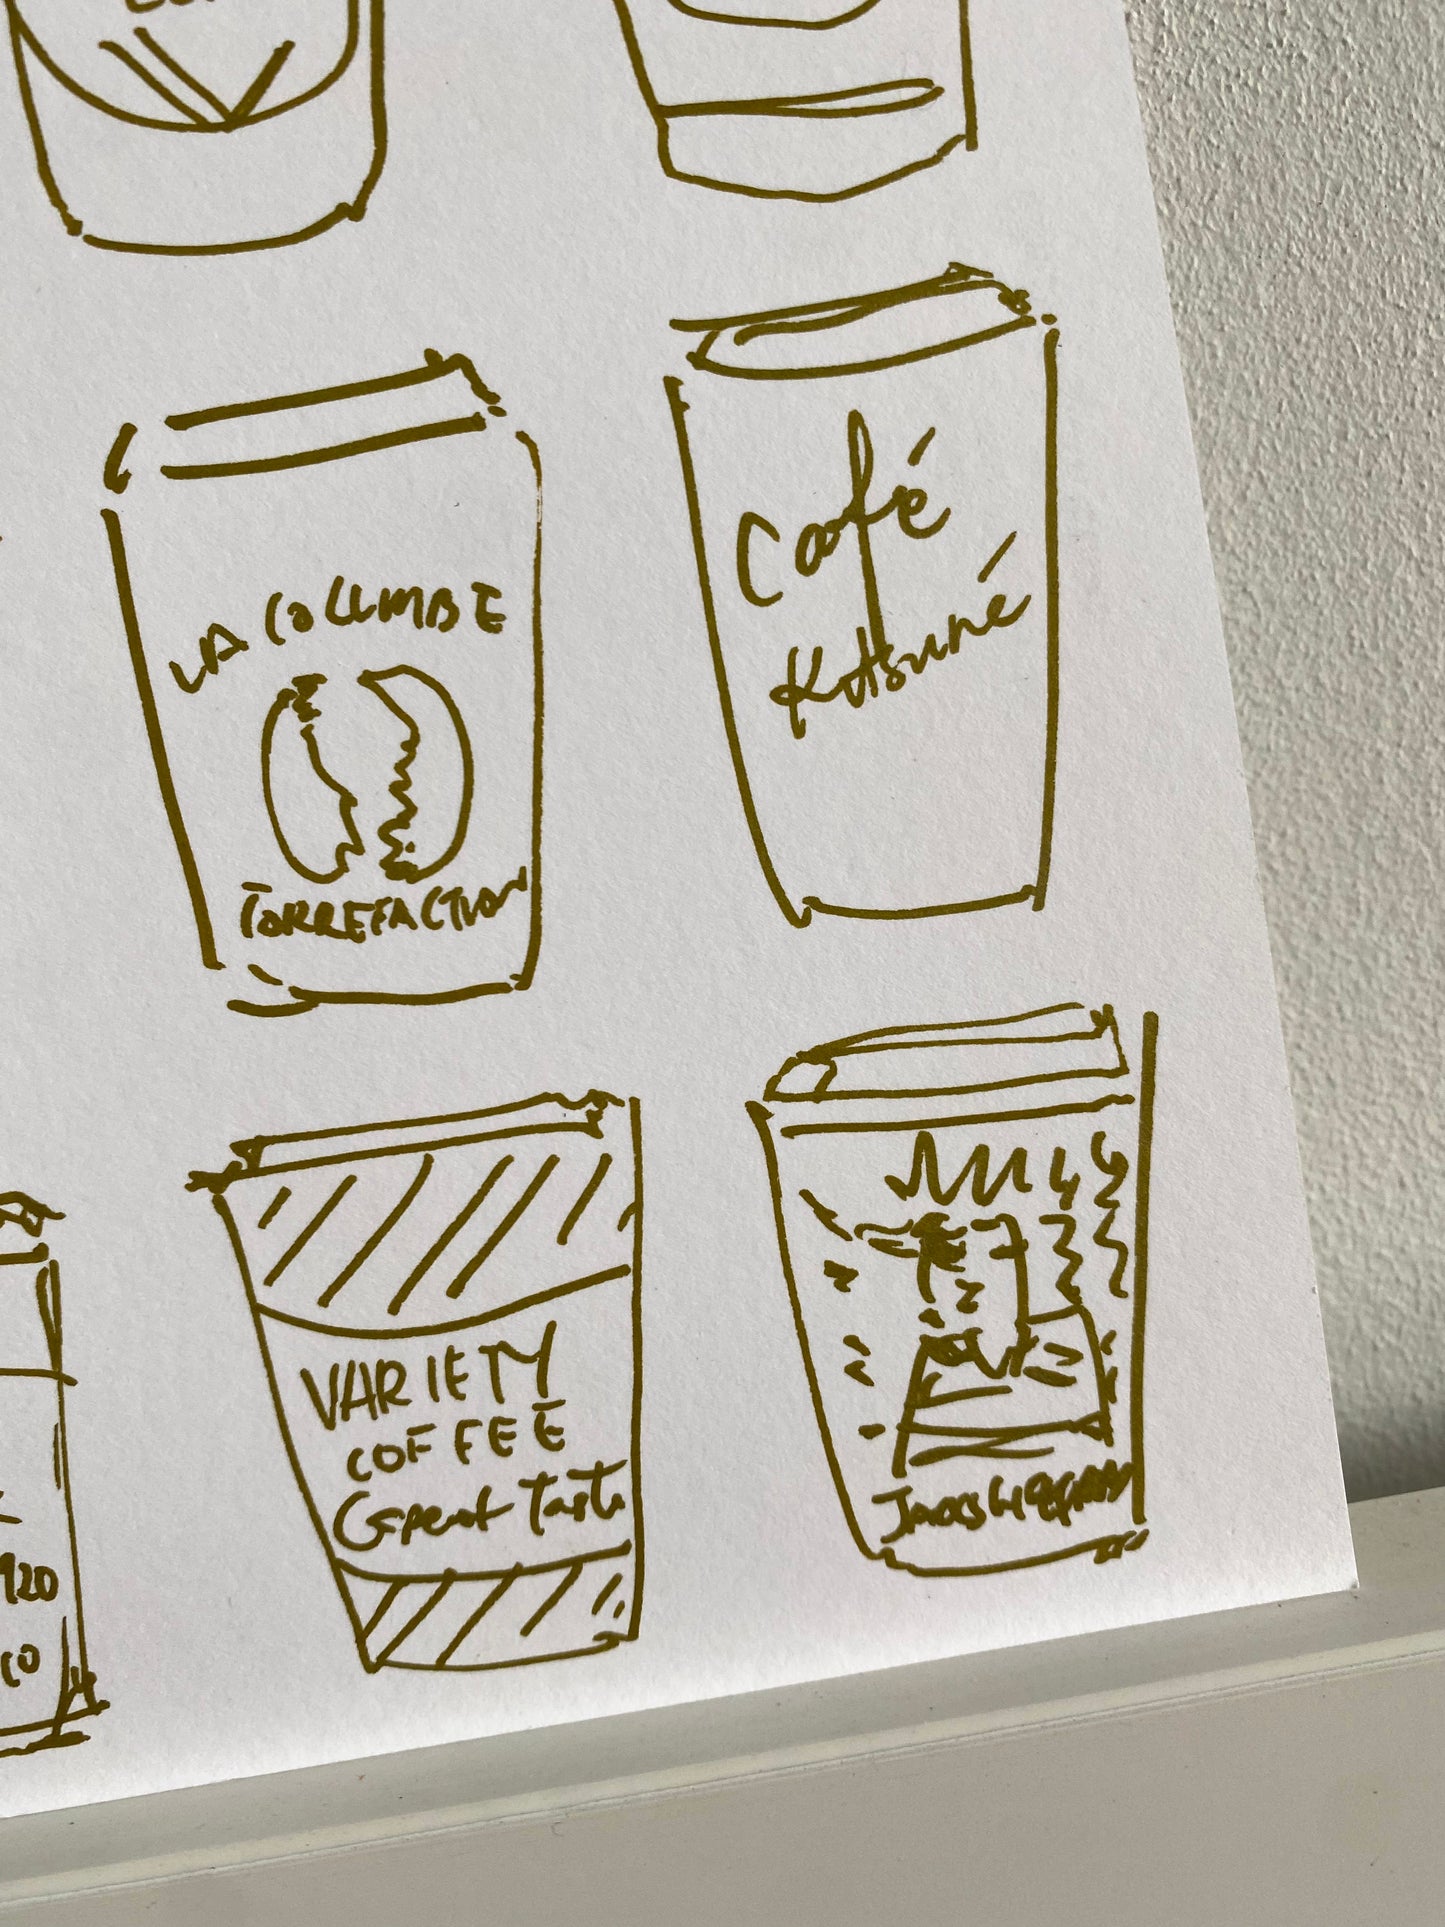 LA COLUMBE
TORREFACTION
Café
Kitsuné
VARIETY
COFFEE
Great Taste
920
CO